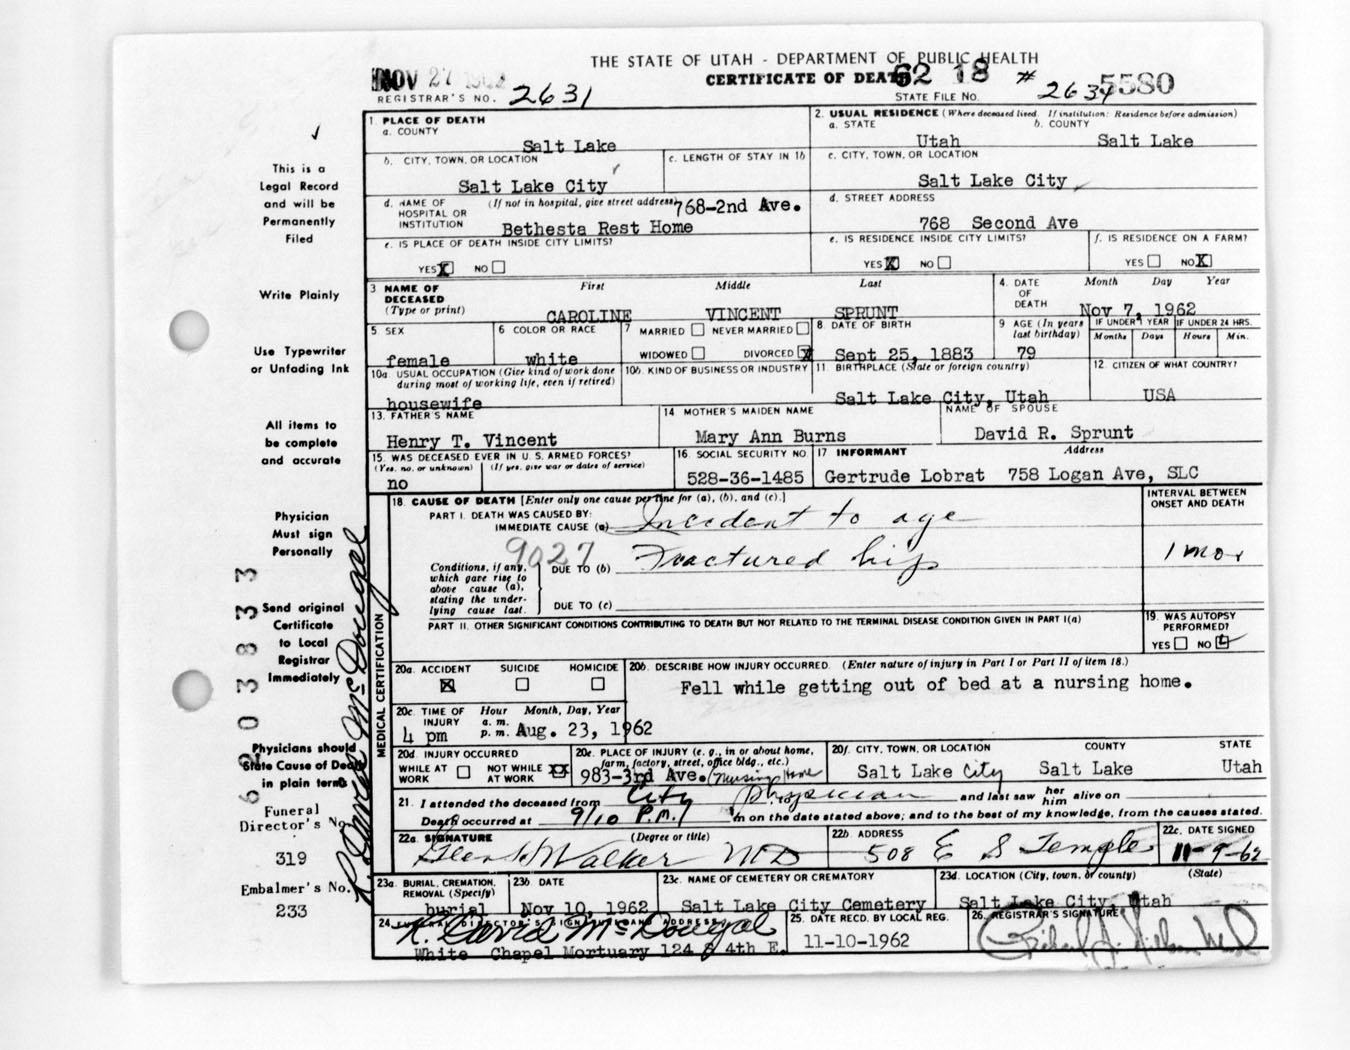 THE STATE OF UTAH - DEPARTMENT OF PUBLIC HEALTH
NOV 27 1962
CERTIFICATE OF DEATH
62 18
# 2634
5580
REGISTRAR'S NO. 2631
STATE FILE NO.
This is a
Legal Record
and will be
Permanently
Filed
Write Plainly
Use Typewriter
or Unfading Ink
All items to
be complete
and accurate
Physician
Must sign
Personally
Send original
Certificate
to Local
Registrar
Immediately
Physicians should
State Cause of Death
in plain terms
Funeral
Director's No.
319
Embalmer's No.
233
R. David McDougal
1. PLACE OF DEATH
a. COUNTY
Salt Lake
2. USUAL RESIDENCE (Where deceased lived. If institution: Residence before admission)
a. STATE b. COUNTY
Utah Salt Lake
b. CITY, TOWN, OR LOCATION
Salt Lake City
c. LENGTH OF STAY IN 1b
c. CITY, TOWN, OR LOCATION
Salt Lake City
d. NAME OF HOSPITAL OR INSTITUTION (If not in hospital, give street address) 768-2nd Ave.
Bethesta Rest Home
d. STREET ADDRESS
768 Second Ave
e. IS PLACE OF DEATH INSIDE CITY LIMITS?
YES X NO
e. IS RESIDENCE INSIDE CITY LIMITS?
YES X NO
f. IS RESIDENCE ON A FARM?
YES NO X
3 NAME OF DECEASED (Type or print)
First Middle Last
CAROLINE VINCENT SPRUNT
4. DATE OF DEATH Month Day Year
Nov 7, 1962
5 SEX
female
6 COLOR OR RACE
white
7 MARRIED NEVER MARRIED
WIDOWED DIVORCED X
8 DATE OF BIRTH
Sept 25, 1883
9 AGE (In years last birthday)
79
IF UNDER 1 YEAR IF UNDER 24 HRS.
Months Days Hours Min.
10a. USUAL OCCUPATION (Give kind of work done during most of working life, even if retired)
housewife
10b. KIND OF BUSINESS OR INDUSTRY
11 BIRTHPLACE (State or foreign country)
Salt Lake City, Utah
12. CITIZEN OF WHAT COUNTRY?
USA
13. FATHER'S NAME
Henry T. Vincent
14 MOTHER'S MAIDEN NAME
Mary Ann Burns
NAME OF SPOUSE
David R. Sprunt
15. WAS DECEASED EVER IN U. S. ARMED FORCES?
(Yes, no, or unknown) (If yes, give war or dates of service)
no
16. SOCIAL SECURITY NO.
528-36-1485
17 INFORMANT Address
Gertrude Lobrat 758 Logan Ave, SLC
MEDICAL CERTIFICATION
18. CAUSE OF DEATH [Enter only one cause per line for (a), (b), and (c).]
INTERVAL BETWEEN ONSET AND DEATH
PART I. DEATH WAS CAUSED BY:
IMMEDIATE CAUSE (a) Incedent to age
9027
Conditions, if any, which gave rise to above cause (a), stating the underlying cause last.
DUE TO (b) Fractured hip
1 mo.
DUE TO (c)
PART II. OTHER SIGNIFICANT CONDITIONS CONTRIBUTING TO DEATH BUT NOT RELATED TO THE TERMINAL DISEASE CONDITION GIVEN IN PART I(a)
19. WAS AUTOPSY PERFORMED?
YES NO
20a. ACCIDENT SUICIDE HOMICIDE
X
20b. DESCRIBE HOW INJURY OCCURRED. (Enter nature of injury in Part I or Part II of item 18.)
Fell while getting out of bed at a nursing home.
20c. TIME OF INJURY Hour a. m. p. m. Month, Day, Year
4 pm Aug. 23, 1962
20d. INJURY OCCURRED
WHILE AT WORK NOT WHILE AT WORK XX
20e. PLACE OF INJURY (e. g., in or about home, farm, factory, street, office bldg., etc.)
983-3rd Ave. (Nursing Home
20f. CITY, TOWN, OR LOCATION COUNTY STATE
Salt Lake City Salt Lake Utah
21. I attended the deceased from City Physician and last saw her him alive on
Death occurred at 9/10 P.M. m on the date stated above; and to the best of my knowledge, from the causes stated.
22a. SIGNATURE (Degree or title)
Walker MD
22b. ADDRESS
508 E S Temple
22c. DATE SIGNED
11-9-62
23a. BURIAL, CREMATION, REMOVAL (Specify)
burial
23b DATE
Nov 10, 1962
23c. NAME OF CEMETERY OR CREMATORY
Salt Lake City Cemetery
23d. LOCATION (City, town, or county) (State)
Salt Lake City, Utah
24. FUNERAL DIRECTOR'S SIGNATURE AND ADDRESS
R. David McDougal
White Chapel Mortuary 124 S 4th E.
25. DATE RECD. BY LOCAL REG.
11-10-1962
26. REGISTRAR'S SIGNATURE